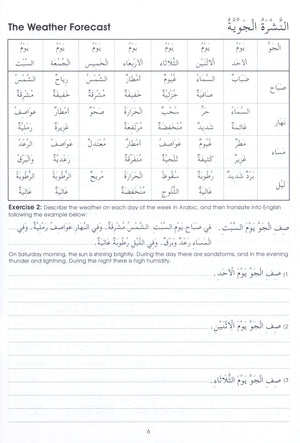 The Weather Forecast
النَّشْرَةُ الْجَوِّيَّةُ
الجَوّ
يَوْمُ الأَحَد
يَوْمُ الاثْنَيْن
يَوْمُ الثُّلاثَاء
يَوْمُ الأَرْبِعَاء
يَوْمُ الخَمِيس
يَوْمُ الجُمْعَة
يَوْمُ السَّبْت
صَبَاح
ضَبَابٌ
السَّمَاءُ صَافِيَةٌ
غُيُومٌ خَفِيفَةٌ
أَمْطَارٌ خَفِيفَةٌ
الشَّمْسُ مُشْرِقَةٌ
رِيَاحٌ خَفِيفَةٌ
الشَّمْسُ مُشْرِقَةٌ
نَهَار
السَّمَاءُ غَائِمَةٌ
حَرٌّ شَدِيدٌ
سُحُبٌ مُنْخَفِضَةٌ
الحَرَارَةُ مُرْتَفِعَةٌ
صَحْوٌ
أَمْطَارٌ غَزِيرَةٌ
عَوَاصِفُ رَمْلِيَّةٌ
مَسَاء
مَطَرٌ غَزِيرٌ
غُيُومٌ كَثِيفَةٌ
عَوَاصِفُ ثَلْجِيَّةٌ
أَمْطَارٌ مُتَفَرِّقَةٌ
مُعْتَدِلٌ
عَوَاصِفُ رَعْدِيَّةٌ
الرَّعْدُ وَالبَرْقُ
لَيْل
بَرْدٌ شَدِيدٌ
رُطُوبَةٌ عَالِيَةٌ
سُقُوطُ الثُّلُوجِ
الحَرَارَةُ مُنْخَفِضَةٌ
مُرِيحٌ
الرُّطُوبَةُ عَالِيَةٌ
الرُّطُوبَةُ عَالِيَةٌ
Exercise 2: Describe the weather on each day of the week in Arabic, and then translate into English
following the example below:
صِفِ الجَوَّ يَوْمَ السَّبْتِ.
فِي صَبَاحِ يَوْمِ السَّبْتِ الشَّمْسُ مُشْرِقَةٌ. وَفِي النَّهَارِ عَوَاصِفُ رَمْلِيَّةٌ. وَفِي
المَسَاءِ رَعْدٌ وَبَرْقٌ. وَفِي اللَّيْلِ رُطُوبَةٌ عَالِيَةٌ.
On Saturday morning, the sun is shining brightly. During the day there are sandstorms, and in the evening
thunder and lightning. During the night there is high humidity.
1) صِفِ الجَوَّ يَوْمَ الأَحَدِ.
2) صِفِ الجَوَّ يَوْمَ الاثْنَيْنِ.
3) صِفِ الجَوَّ يَوْمَ الثُّلاثَاءِ.
6